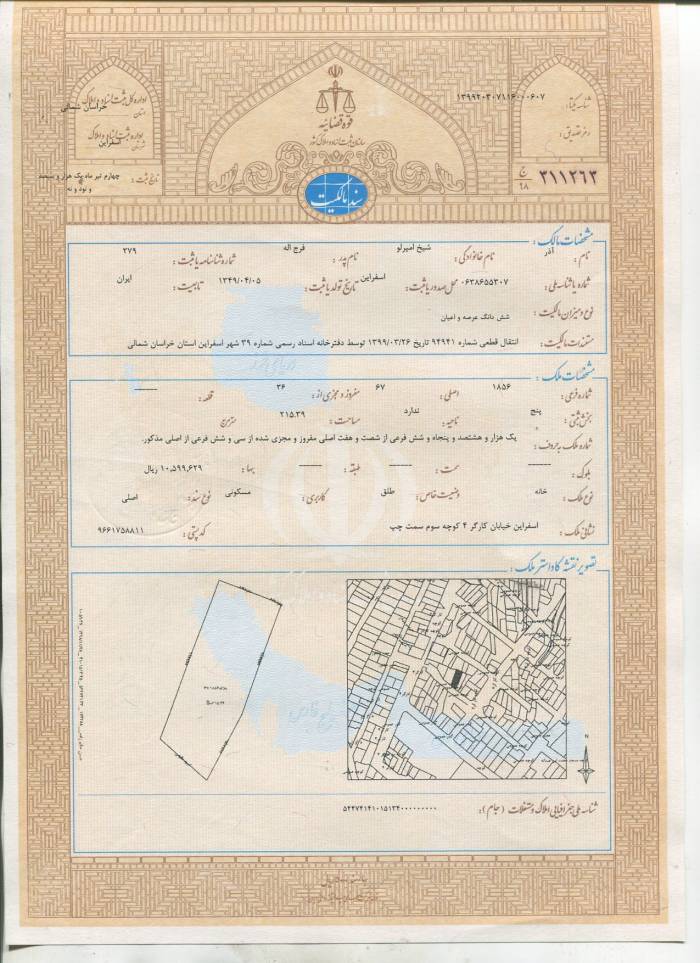 قوه قضائیه
سازمان ثبت اسناد و املاک کشور
سند مالکیت
شناسه یکتا: ۱۳۹۹۲۰۳۰۷۱۱۶۰۰۰۶۰۷
دفتر تصدیق:
۳۱۱۲۶۳ ج ۹۸
اداره کل ثبت اسناد و املاک
استان خراسان شمالی
اداره ثبت اسناد و املاک
شهرستان اسفراین
تاریخ ثبت: چهارم تیر ماه یک هزار و سیصد
و نود و نه
مشخصات مالک:
نام: آذر نام خانوادگی: شیخ امیرلو نام پدر: فرج اله شماره شناسنامه یا ثبت: ۲۷۹
شماره یا شناسه ملی: ۰۶۳۸۶۵۵۳۰۷ محل صدور یا ثبت: اسفراین تاریخ تولد یا ثبت: ۱۳۴۹/۰۴/۰۵ تابعیت: ایران
نوع و میزان مالکیت: شش دانگ عرصه و اعیان
مستندات مالکیت: انتقال قطعی شماره ۹۴۹۴۱ تاریخ ۱۳۹۹/۰۳/۲۶ توسط دفترخانه اسناد رسمی شماره ۳۹ شهر اسفراین استان خراسان شمالی
مشخصات ملک:
شماره فرعی: ۱۸۵۶ اصلی: ۶۷ مفروز و مجزی از: ۳۶ قطعه: ——
بخش ثبتی: پنج ناحیه: ندارد مساحت: ۲۱۵.۳۹ مترمربع
شماره ملک به حروف: یک هزار و هشتصد و پنجاه و شش فرعی از شصت و هفت اصلی مفروز و مجزی شده از سی و شش فرعی از اصلی مذکور.
بلوک: —— سمت: —— طبقه: —— بها: ۱۰,۵۹۹,۶۲۹ ریال
نوع ملک: خانه وضعیت خاص: طلق کاربری: مسکونی نوع سند: اصلی
نشانی ملک: اسفراین خیابان کارگر ۴ کوچه سوم سمت چپ کد پستی: ۹۶۶۱۷۵۸۸۱۱
تصویر نقشه کاداستر ملک:
خلیج فارس
N
شناسه ملی جغرافیایی املاک و مستغلات (جام): ۵۲۴۷۴۱۴۱۰۱۵۱۳۴۰۰۰۰۰۰۰۰۰